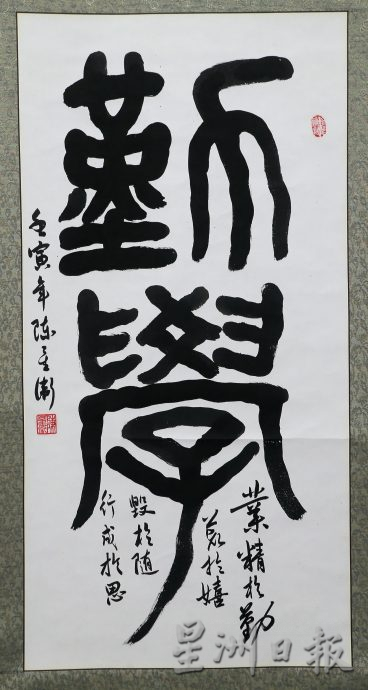 勤學
業精於勤
荒於嬉
行成於思
毀於随
壬寅年 陈
星洲日報